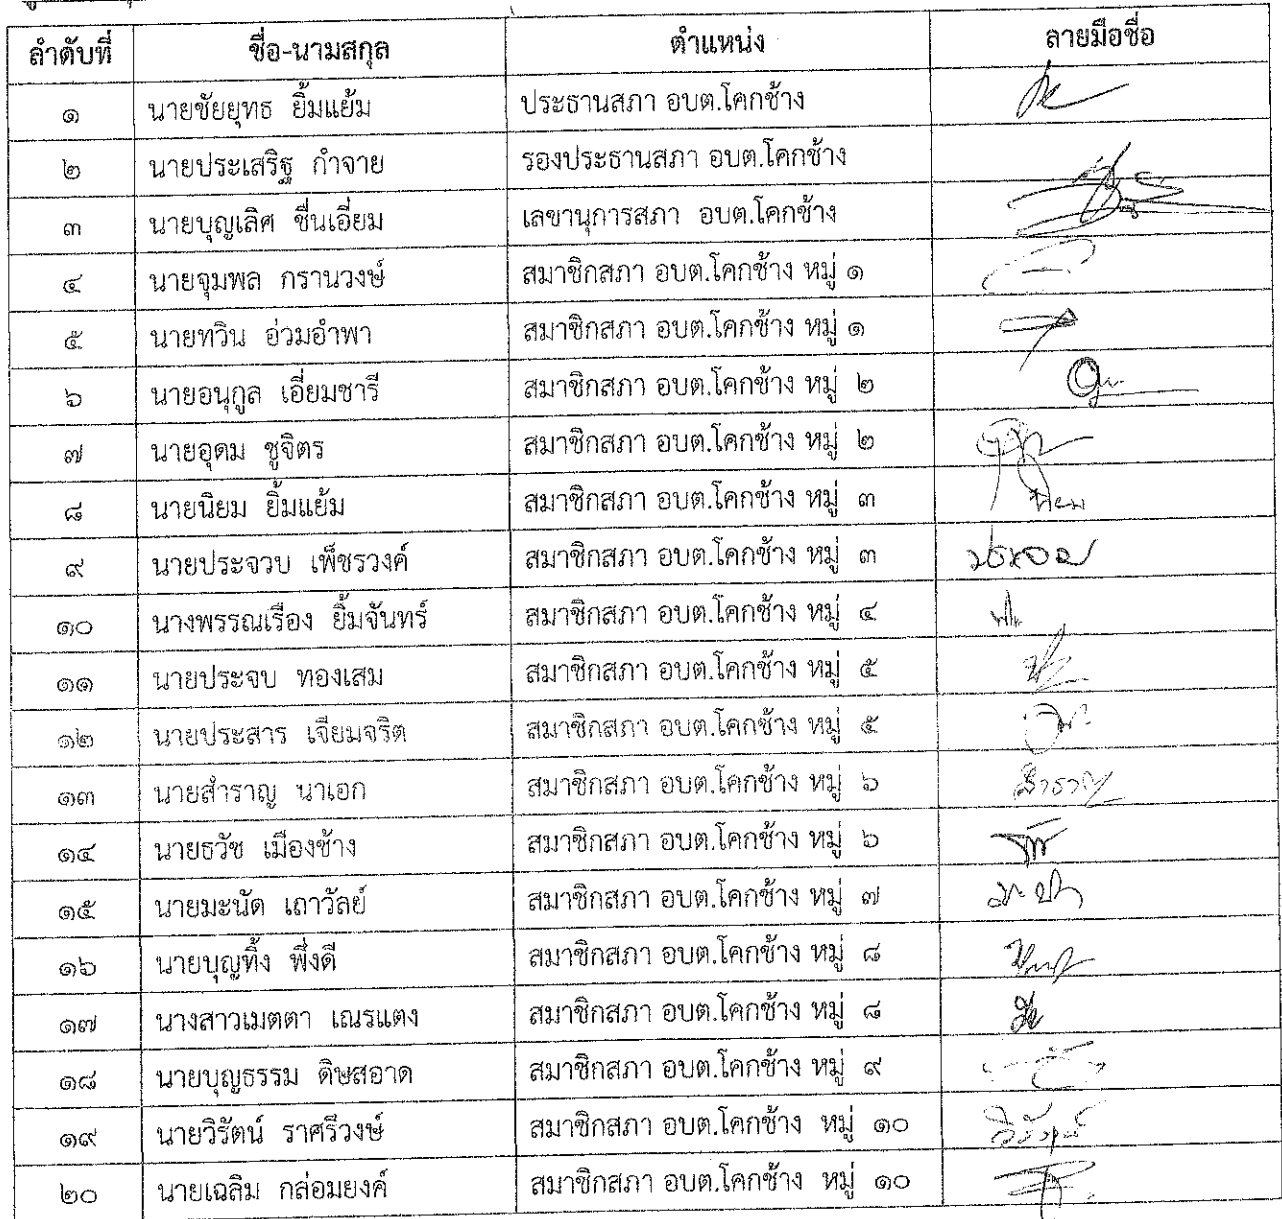 ลำดับที่ ชื่อ-นามสกุล ตำแหน่ง ลายมือชื่อ
๑ นายชัยยุทธ ยิ้มแย้ม ประธานสภา อบต.โคกช้าง
๒ นายประเสริฐ กำจาย รองประธานสภา อบต.โคกช้าง
๓ นายบุญเลิศ ชื่นเอี่ยม เลขานุการสภา อบต.โคกช้าง
๔ นายจุมพล กรานวงษ์ สมาชิกสภา อบต.โคกช้าง หมู่ ๑
๕ นายทวิน อ่วมอำพา สมาชิกสภา อบต.โคกช้าง หมู่ ๑
๖ นายอนุกูล เอี่ยมชารี สมาชิกสภา อบต.โคกช้าง หมู่ ๒
๗ นายอุดม ชูจิตร สมาชิกสภา อบต.โคกช้าง หมู่ ๒
๘ นายนิยม ยิ้มแย้ม สมาชิกสภา อบต.โคกช้าง หมู่ ๓ นิยม
๙ นายประจวบ เพ็ชรวงค์ สมาชิกสภา อบต.โคกช้าง หมู่ ๓ ประจวบ
๑๐ นางพรรณเรือง ยิ้มจันทร์ สมาชิกสภา อบต.โคกช้าง หมู่ ๔
๑๑ นายประจบ ทองเสม สมาชิกสภา อบต.โคกช้าง หมู่ ๕
๑๒ นายประสาร เจียมจริต สมาชิกสภา อบต.โคกช้าง หมู่ ๕
๑๓ นายสำราญ นาเอก สมาชิกสภา อบต.โคกช้าง หมู่ ๖ สำราญ
๑๔ นายธวัช เมืองช้าง สมาชิกสภา อบต.โคกช้าง หมู่ ๖
๑๕ นายมะนัด เถาวัลย์ สมาชิกสภา อบต.โคกช้าง หมู่ ๗
๑๖ นายบุญทิ้ง พึ่งดี สมาชิกสภา อบต.โคกช้าง หมู่ ๘
๑๗ นางสาวเมตตา เณรแตง สมาชิกสภา อบต.โคกช้าง หมู่ ๘
๑๘ นายบุญธรรม ดิษสอาด สมาชิกสภา อบต.โคกช้าง หมู่ ๙
๑๙ นายวิรัตน์ ราศรีวงษ์ สมาชิกสภา อบต.โคกช้าง หมู่ ๑๐ วิรัตน์
๒๐ นายเฉลิม กล่อมยงค์ สมาชิกสภา อบต.โคกช้าง หมู่ ๑๐